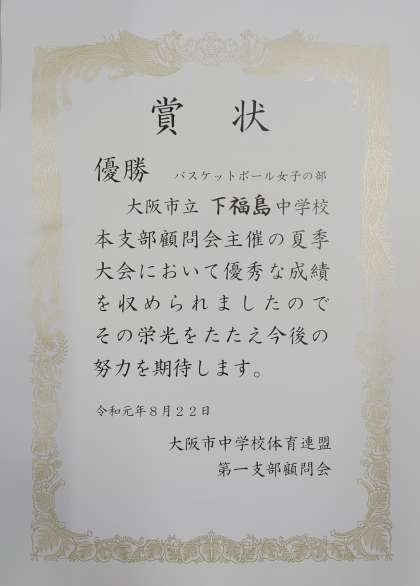 賞状
優勝 バスケットボール女子の部
大阪市立 下福島中学校
本支部顧問会主催の夏季
大会において優秀な成績
を収められましたので
その栄光をたたえ今後の
努力を期待します。
令和元年8月22日
大阪市中学校体育連盟
第一支部顧問会